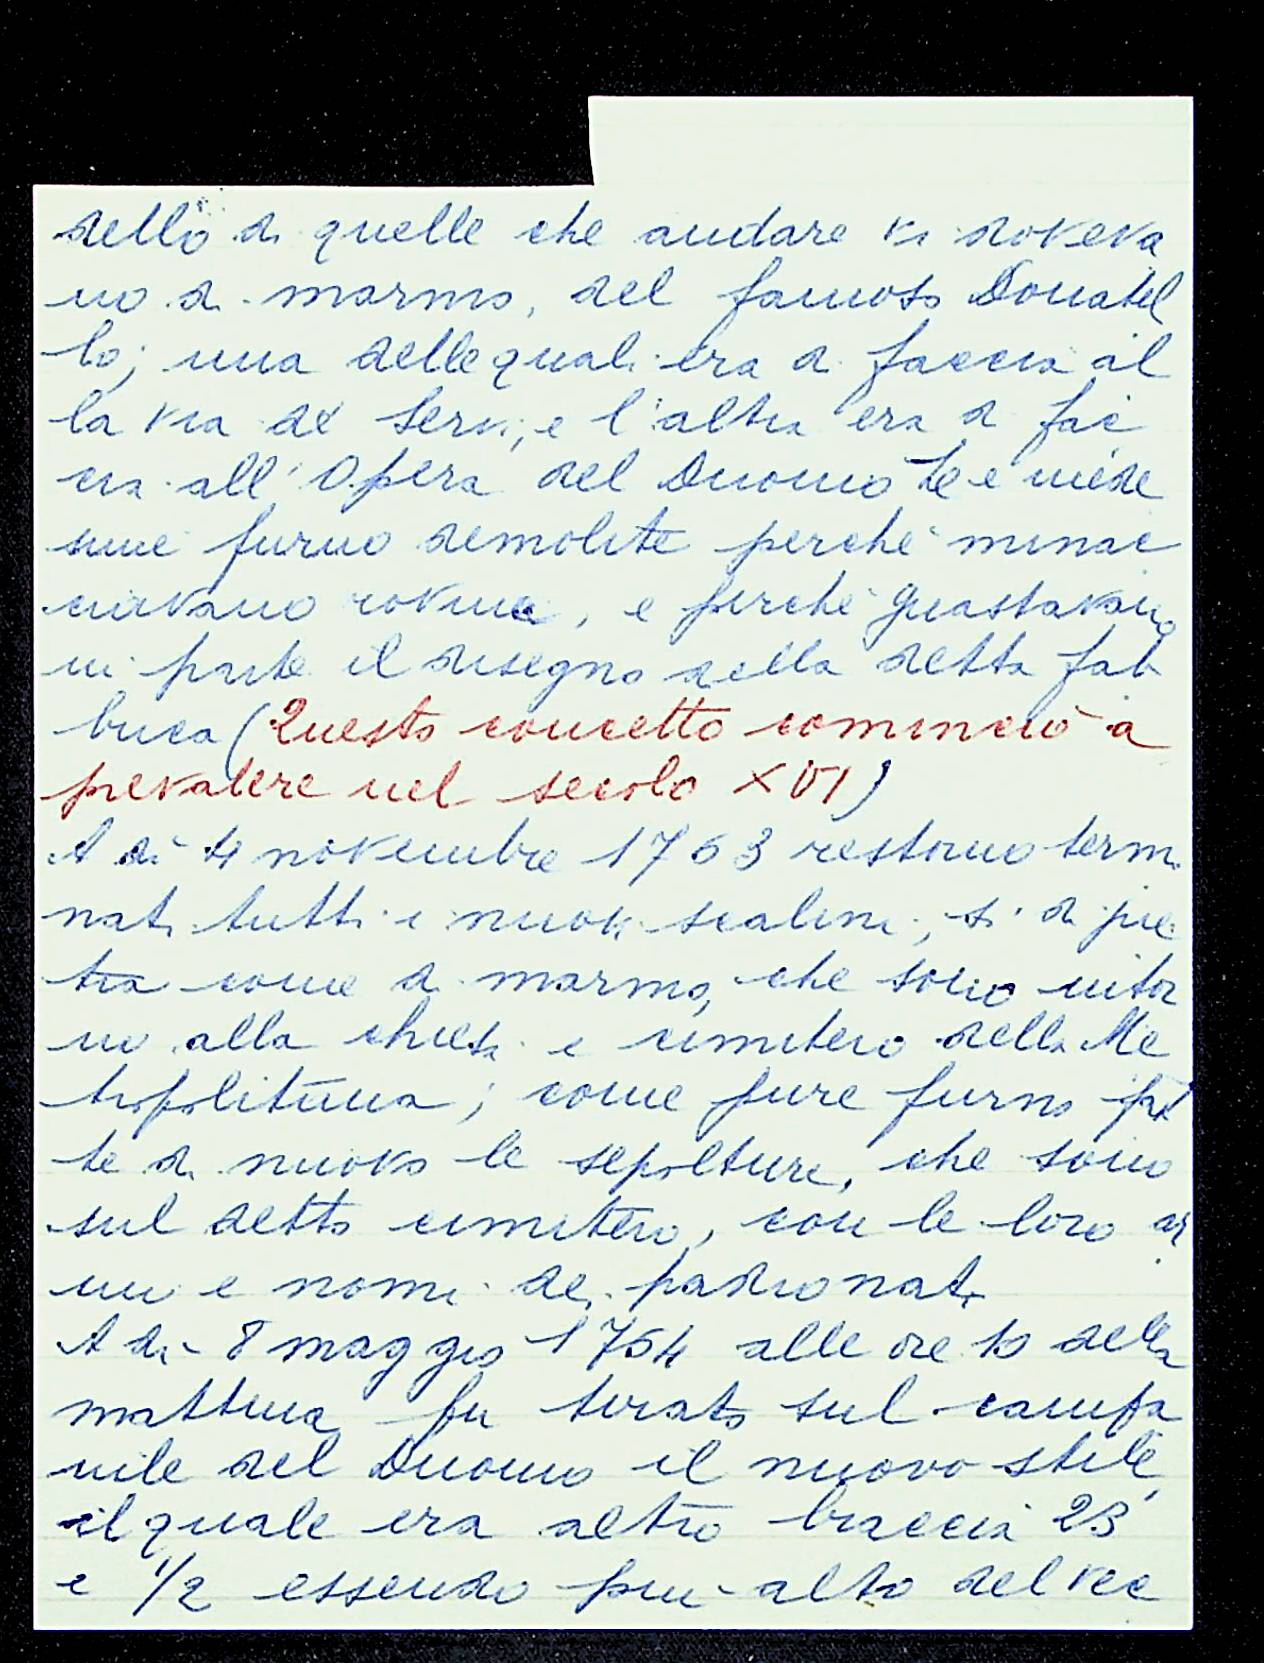 dello di quelle che andare vi doveva
no di marmo, del famoso Donatel
lo; una delle quali era a faccia al
la via de' Servi, e l'altra era a fac
cia all'Opera del Duomo Le mede
sime furno demolite perché minac
ciavano rovina, e perché guastavano
in parte il disegno della detta fab
brica (Questo concetto cominciò a
prevalere nel secolo XVI)
A dì 4 novembre 1763 restorno termi
nati tutti i nuovi scalini, sì di pie
tra come di marmo, che sono intor
no alla chiesa e cimitero della Me
tropolitana; come pure furno fat
te di nuovo le sepolture, che sono
sul detto cimitero, con le loro ar
mi e nomi dei padronati
A dì 8 maggio 1764 alle ore 10 della
mattina fu tirato sul campa
nile del Duomo il nuovo stile,
il quale era alto braccia 23
e 1/2 essendo più alto del vec